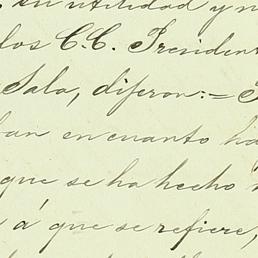 su utilidad y n
los C.C. President
Sala, diferon:=
ban en cuanto ha
que se ha hecho
á que se refiere,